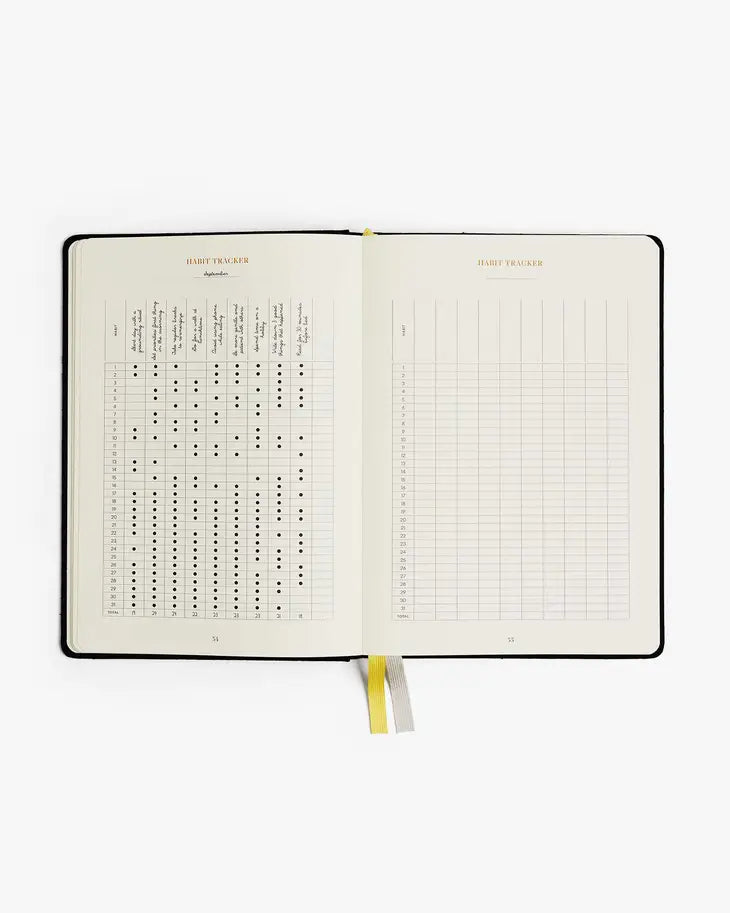 HABIT TRACKER
september
HABIT
Start day with a
Set priorities first thing
in the morning
Take regular breaks
Go for a walk at
lunchtime
Avoid using phone
while eating
Be more gentle and
patient with others
Spend time on a
hobby
Write down 3 good
things that happened
Read for 30 minutes
before bed
1
2
3
4
5
6
7
8
9
10
11
12
13
14
15
16
17
18
19
20
21
22
23
24
25
26
27
28
29
30
31
TOTAL
54
HABIT TRACKER
HABIT
1
2
3
4
5
6
7
8
9
10
11
12
13
14
15
16
17
18
19
20
21
22
23
24
25
26
27
28
29
30
31
TOTAL
55